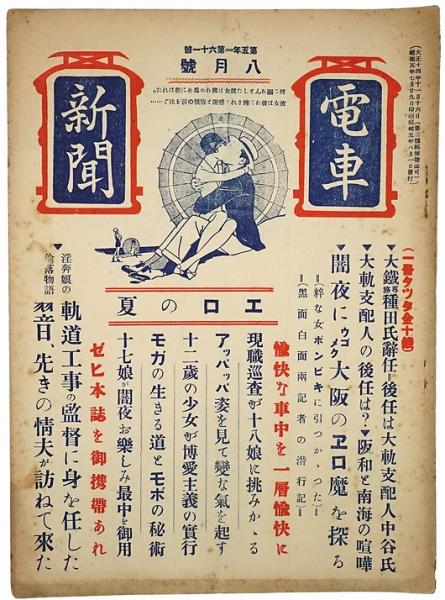 第五年第六十一號
八月號
電車
新聞
(大正十四年十一月十六日第三種郵便物認可)
昭和五年七月廿九日印刷昭和五年八月一日發行
エロの夏
(一冊タッタ金十錢)
▼大鐵專務種田氏辭任=後任は大軌支配人中谷氏
▼大軌支配人の後任は?▼阪和と南海の喧嘩
▼闇夜にウゴメク大阪のヱロ魔を探ろ
=(粹な女ポンビキに引つかゝつた)=
=(黑面白面兩記者の潜行記)=
愉快な車中を一層愉快に
現職巡査が十八娘に挑みかゝる
アッパッパ姿を見て變な氣を起す
十二歳の少女が博愛主義の實行
モガの生きる道とモボの秘術
十七娘が闇夜お樂しみ最中を御用
ゼヒ本誌を御携帶あれ
▼軌道工事の監督に身を任した
淫奔娘の
墮落物語
翌日、先きの情夫が訪ねて來た